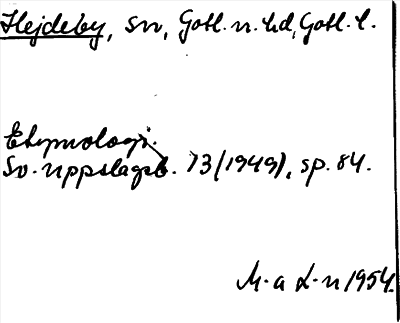 Hejdeby, sn, Gotl. n. hd, Gotl. l.
Etymologi.
Sv. uppslagsb. 13 (1949), sp. 84.
M. a L-n 1954.